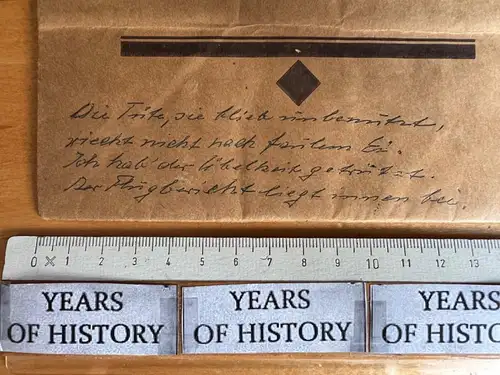 Die Tüte, sie blieb unbenutzt,
riecht nicht nach faulem Ei.
Ich hab' der Übelkeit getrotzt.
Der Flugbericht liegt innen bei.
0 1 2 3 4 5 6 7 8 9 10 11 12 13
YEARS OF HISTORY
YEARS OF HISTORY
YEARS OF HISTO